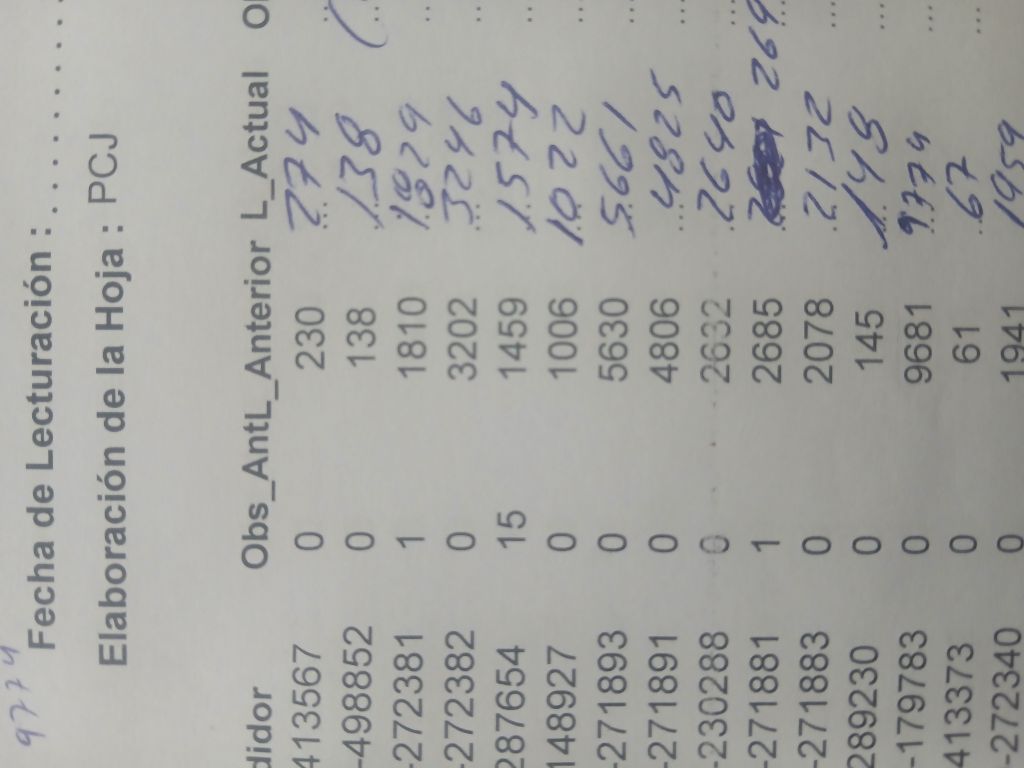 9774
Fecha de Lecturación : . . . . . . . . . .
Elaboración de la Hoja : PCJ
didor Obs_AntL_Anterior L_Actual O
413567 0 230 274
-498852 0 138 138 (
-272381 1 1810 1829
-272382 0 3202 3246
287654 15 1459 1574
148927 0 1006 1022
-271893 0 5630 5661
-271891 0 4806 4825
-230288 0 2632 2640
-271881 1 2685 269
-271883 0 2078 2132
289230 0 145 148
-179783 0 9681 9774
413373 0 61 67
-272340 0 1941 1959